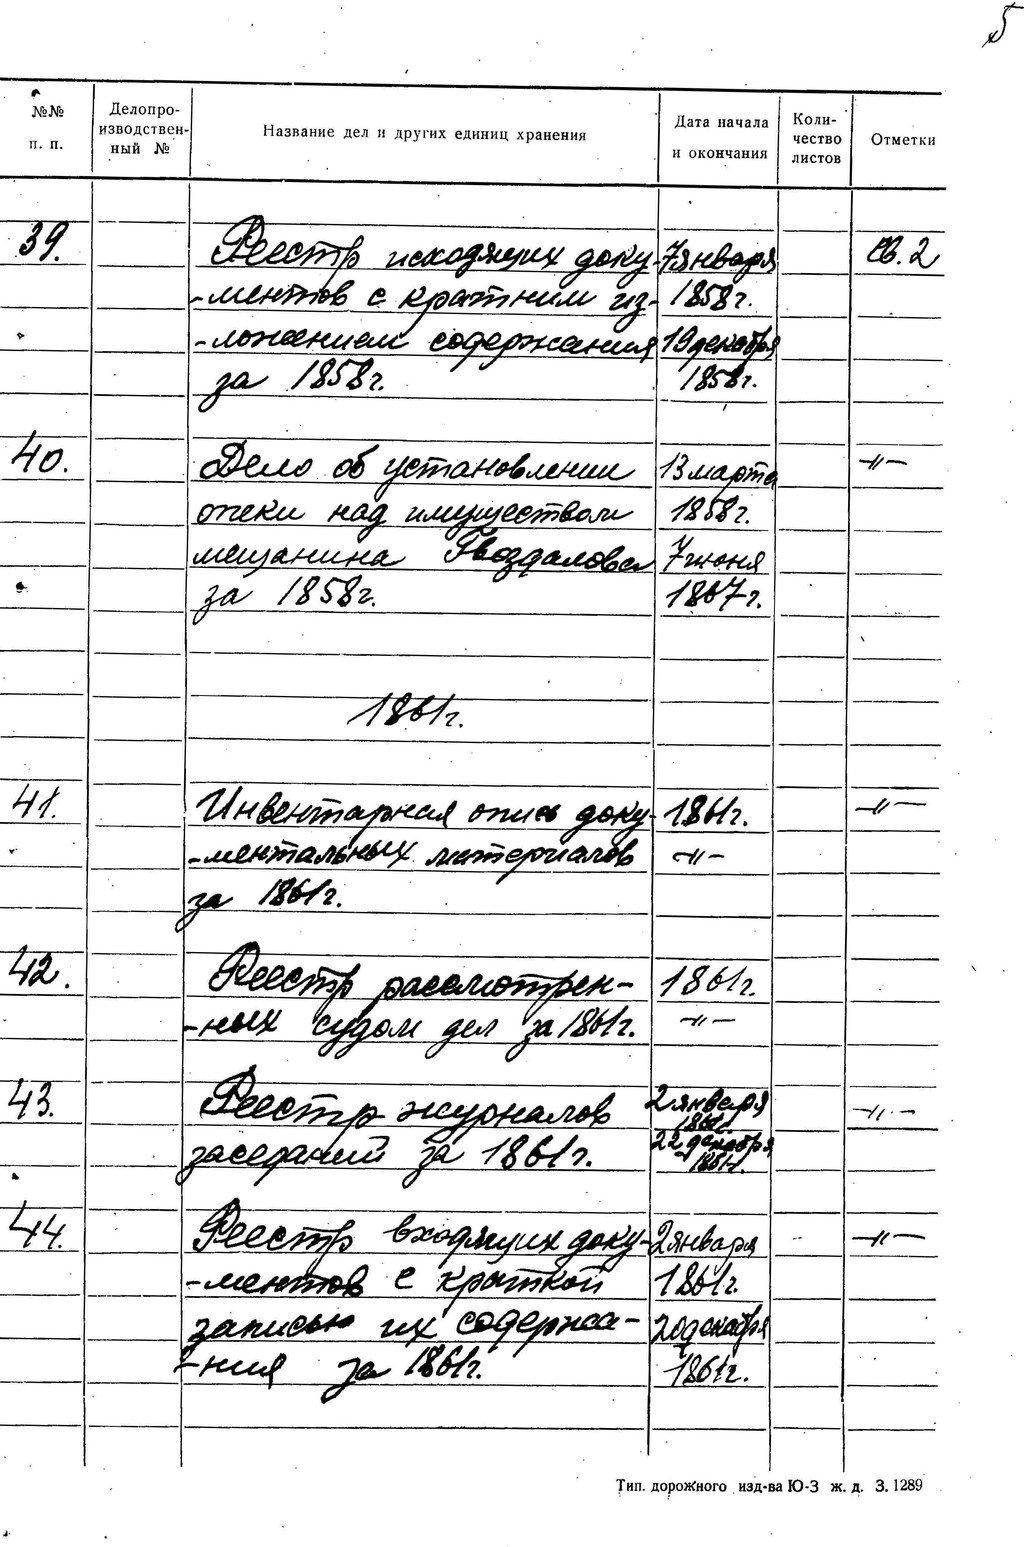 5
№№ п. п.
Делопро-изводствен-ный №
Название дел и других единиц хранения
Дата начала и окончания
Коли-чество листов
Отметки
39. Реестр исходящих доку- 7 января св. 2
-ментов с кратким из- 1858г.
-ложением содержания 19 декабря
за 1858г. 1858г.
40. Дело об установлении 13 марта -"-
опеки над имуществом 1858г.
мещанина Гвоздалова 7 июня
за 1858г. 1867г.
1861г.
41. Инвентарная опись доку- 1861г. -"-
-ментальных материалов -"-
за 1861г.
42. Реестр рассмотрен- 1861г.
-ных судом дел за 1861г. -"-
43. Реестр журналов 2 января 1861г. -"-
заседаний за 1861г. 22 декабря 1861г.
44. Реестр входящих доку- 2 января -"-
-ментов с краткой 1861г.
записью их содержа- 20 декабря
-ния за 1861г. 1861г.
Тип. дорожного изд-ва Ю-З ж. д. З. 1289